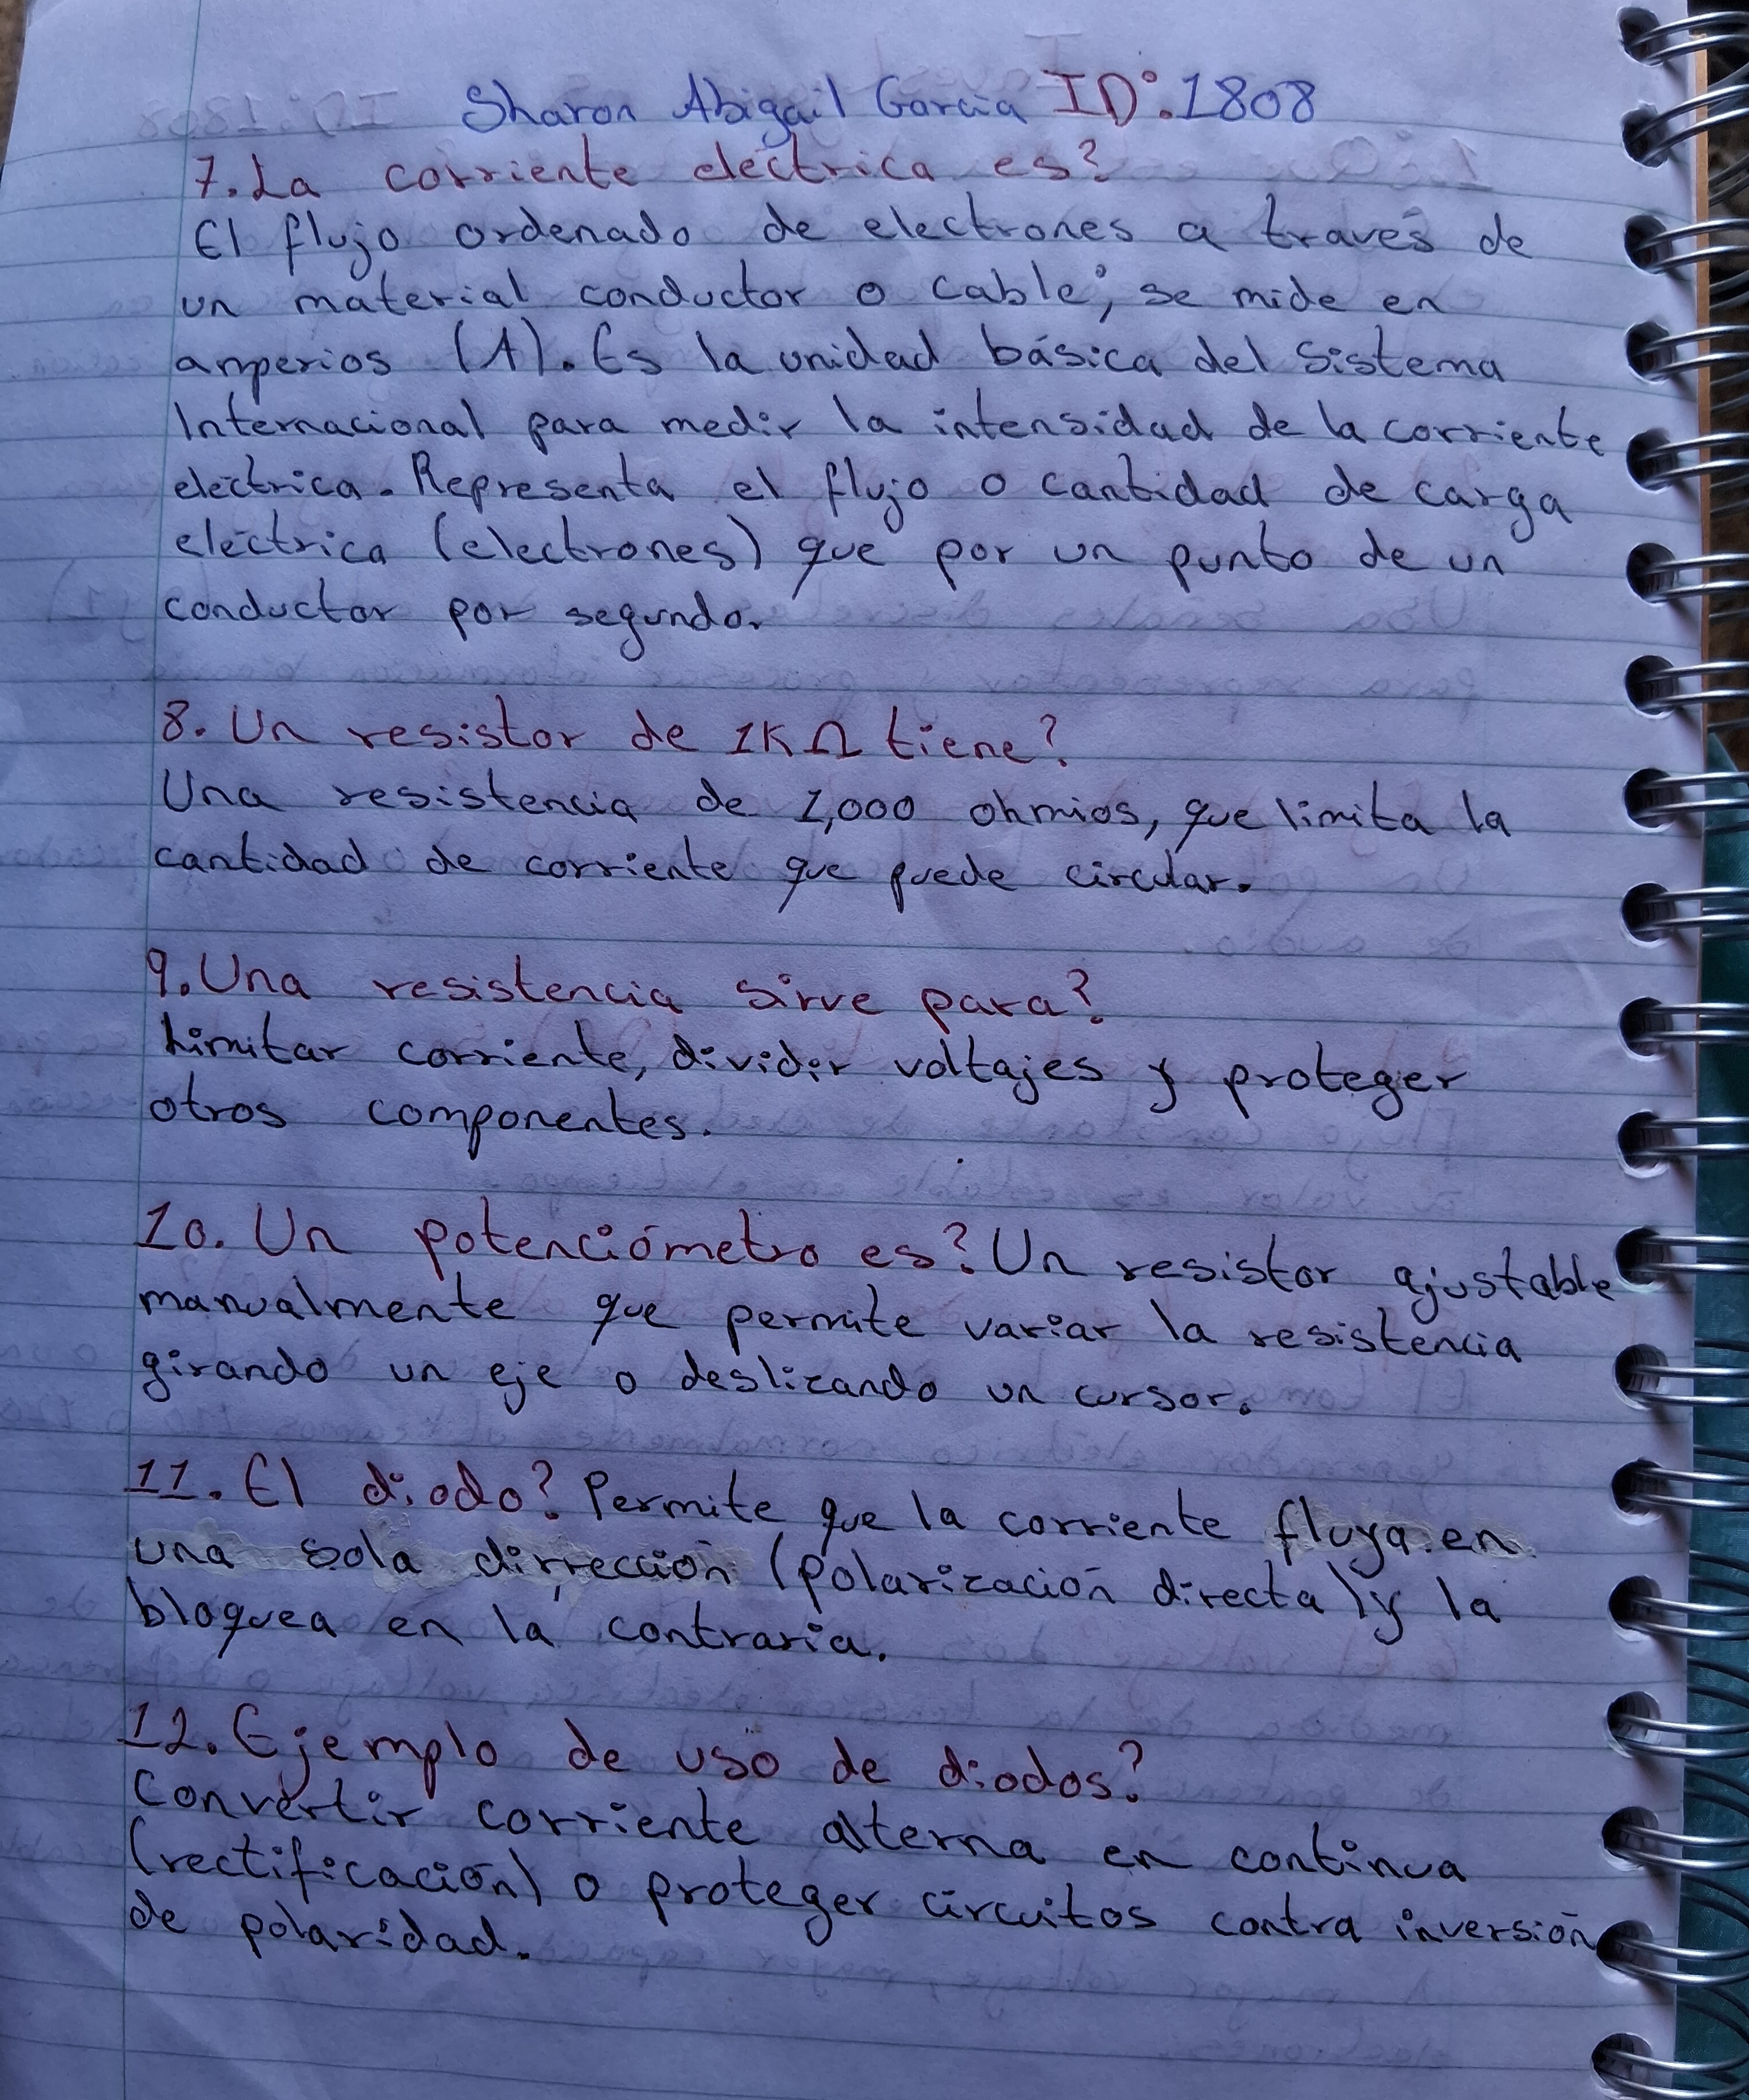 Sharon Abigail Garcia ID:1808
7. La corriente eléctrica es?
El flujo ordenado de electrones a través de
un material conductor o cable; se mide en
amperios (A). Es la unidad básica del Sistema
Internacional para medir la intensidad de la corriente
eléctrica. Representa el flujo o cantidad de carga
eléctrica (electrones) que por un punto de un
conductor por segundo.
8. Un resistor de 1KΩ tiene?
Una resistencia de 1,000 ohmios, que limita la
cantidad de corriente que puede circular.
9. Una resistencia sirve para?
Limitar corriente, dividir voltajes y proteger
otros componentes.
10. Un potenciómetro es? Un resistor ajustable
manualmente que permite variar la resistencia
girando un eje o deslizando un cursor.
11. El diodo? Permite que la corriente fluya en
una sola dirrección (polarización directa) y la
bloquea en la contraria.
12. Ejemplo de uso de diodos?
Convertir corriente alterna en continua
(rectificación) o proteger circuitos contra inversión
de polaridad.